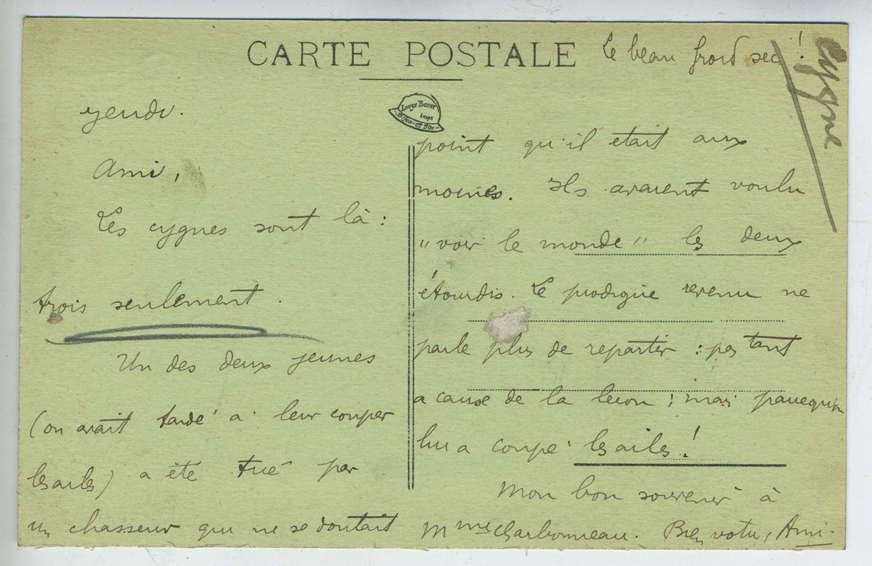 CARTE POSTALE
Le beau froid sec !
cygne
Jeudi.
Ami,
Les cygnes sont là :
trois seulement.
Un des deux jeunes
(on avait tardé a leur couper
les ailes) a été tué par
un chasseur qui ne se doutait
point qu'il était aux
moines. Ils avaient voulu
"voir le monde" les deux
étourdis. Le prodigue revenu ne
parle plus de repartir : pas tant
a cause de la lecon ; mais parcequ'on
lui a coupé les ailes !
Mon bon souvenir à
Mme Charbonneau. Bien votre, Ami.